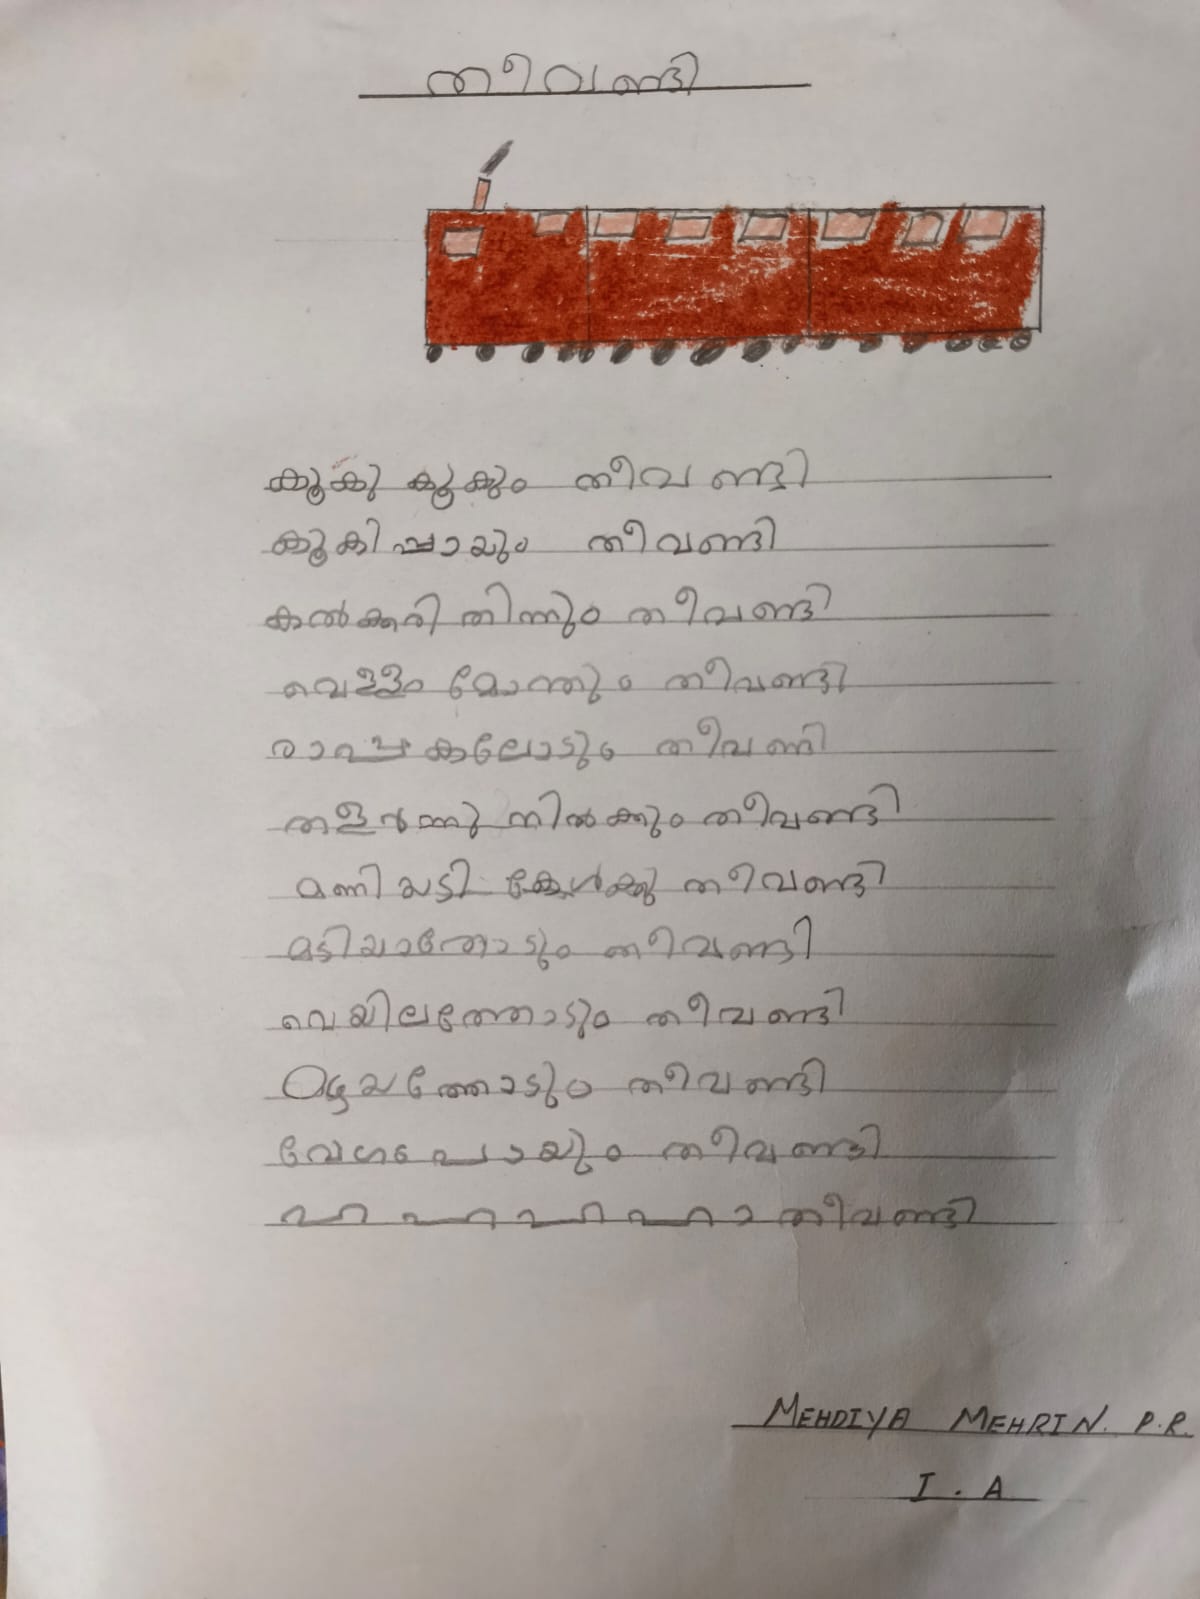 തീവണ്ടി
കൂകൂ കൂകും തീവണ്ടി
കൂകിപ്പായും തീവണ്ടി
കൽക്കരി തിന്നും തീവണ്ടി
വെള്ളം മോന്തും തീവണ്ടി
രാപ്പകലോടും തീവണ്ടി
തളർന്നു നിൽക്കും തീവണ്ടി
മണിയടി കേൾക്കെ തീവണ്ടി
മടിയാതോടും തീവണ്ടി
വെയിലത്തോടും തീവണ്ടി
മഴയത്തോടും തീവണ്ടി
വേഗം പായും തീവണ്ടി
ഹാ ഹാ ഹാ ഹാ തീവണ്ടി
MEHDIYA MEHRIN. P.R.
I. A